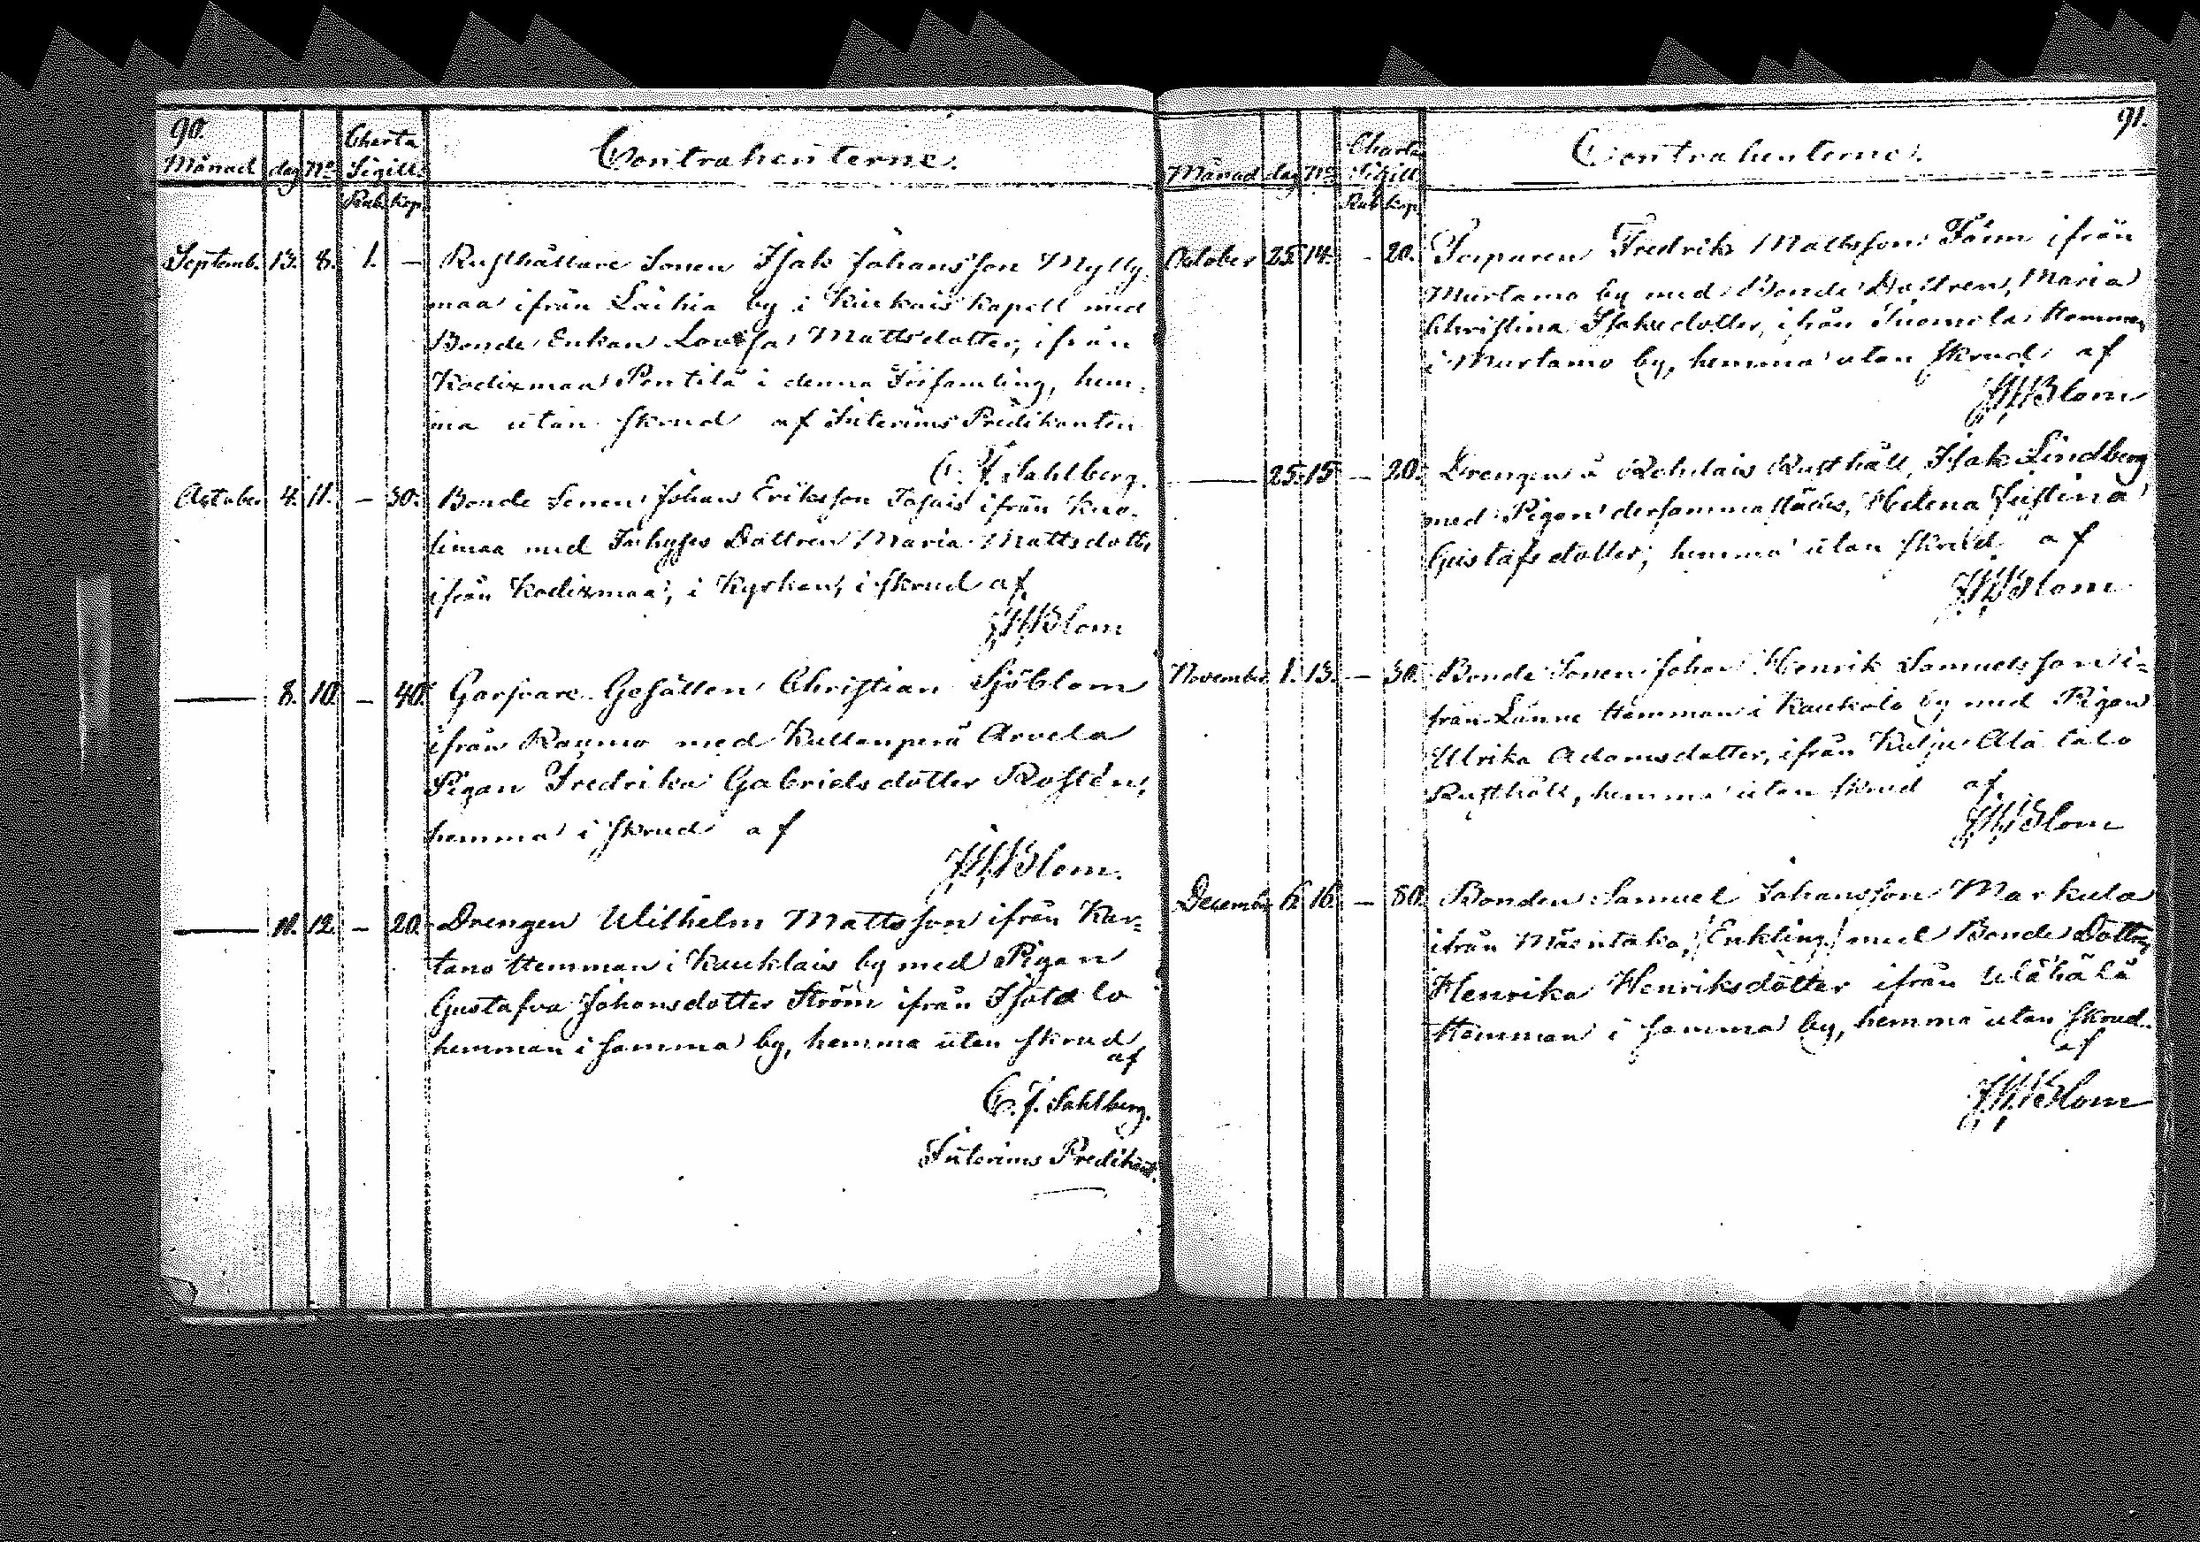 90.
Månad dag No Charta Sigill. Contrahenterne.
Rub. kop.
Septemb. 13. 8. 1. — Rusthållare Sonen Isak Johansson Mylly-
maa ifrån Laihia by i Kiukais kapell med
Bonde Enkan Lovisa Mattsdotter, ifrån
Kodixmaa Pentilä i denna Församling, hem-
ma utan skrud af Interims Predikanten
C. F. Sahlberg.
October 4. 11. — 30. Bonde Sonen Johan Eriksson ifrån
med Inhyses Dottren Maria Mattsdott.
ifrån Kodixmaa, i Kyrkan, i skrud af
Blom
— 8. 10. — 40. Garfvare Gesällen Christian Sjöblom
ifrån Raumo med Kullanperä Arvela
Pigan Fredrika Gabrielsdotter Rostén,
hemma i skrud af
Blom.
— 11. 12. — 20. Drengen Wilhelm Mattsson ifrån Kar-
tano Hemman i Kauklais by med Pigan
Gustafva Johansdotter Ström ifrån Isotalo
hemman i samma by, hemma utan skrud
af
C. F. Sahlberg.
Interims Predikant.
91.
Månad dag No Charta Sigill Contrahenterne.
Rub kop
October 25. 14. — 20. Torparen Fredrik Mattsson ifrån
Murtamo by med Bonde Dottren, Maria
Christina Isaksdotter, ifrån Tuomola Hemman
i Murtamo by, hemma utan skrud af
Blom
— 25. 15 — 20. Drengen å Rusthåll, Isak Lindberg
med Pigan dersammastädes, Helena Justina
Gustafsdotter, hemma utan skrud af
Blom
November 1. 13. — 30. Bonde Sonen Johan Henrik Samuelsson i-
från Länne Hemman i Kaukola by med Pigan
Ulrika Adamsdotter, ifrån Kulju Ala talo
Rusthåll, hemma utan skrud af
Blom
Decemb. 6. 16. — 80. Bonden Samuel Johansson Markula
ifrån /Enkling/ med Bonde Dottr.
Henrika Henriksdotter ifrån
Hemman i samma by, hemma utan skrud.
af
Blom